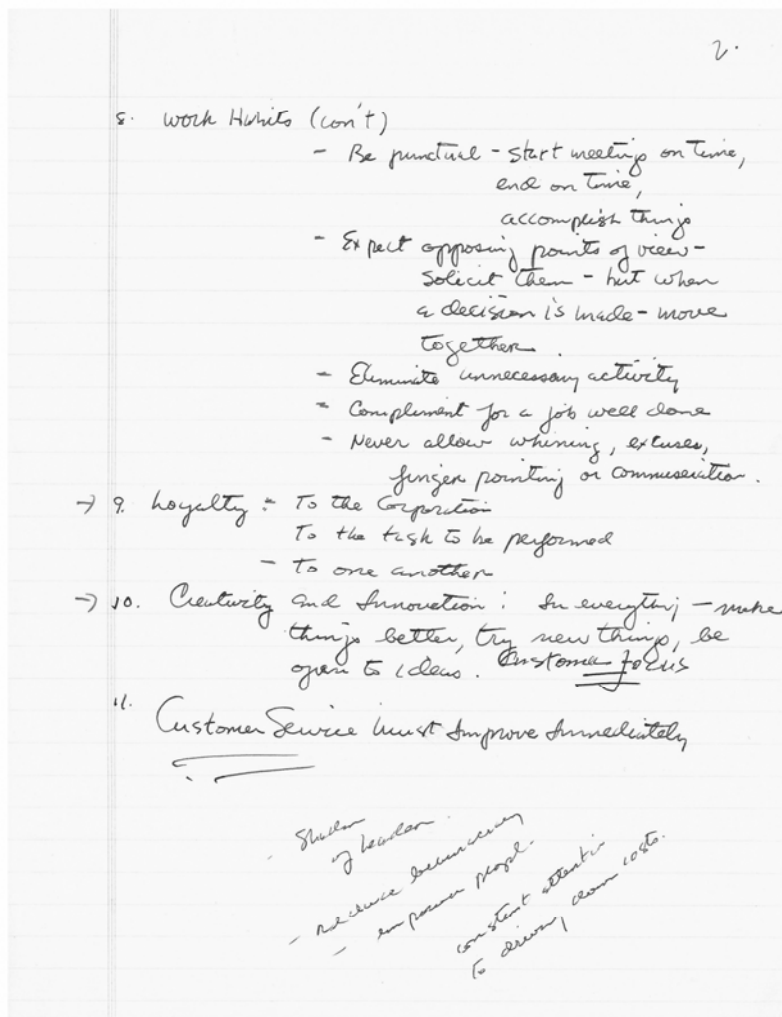 2.
8. Work Habits (con't)
- Be punctual - start meetings on time,
end on time,
accomplish things
- Expect opposing points of view -
solicit them - but when
a decision is made - move
together.
- Eliminate unnecessary activity
- Complement for a job well done
- Never allow whining, excuses,
finger pointing or commiseration.
→ 9. Loyalty : - To the Corporation
To the task to be performed
- To one another
→ 10. Creativity and Innovation : In everything - make
things better, try new things, be
open to ideas. Customer focus
11. Customer Service must Improve Immediately
- Shadow
of leader.
- reduce bureaucracy
- empower people.
constant attention
to driving down costs.